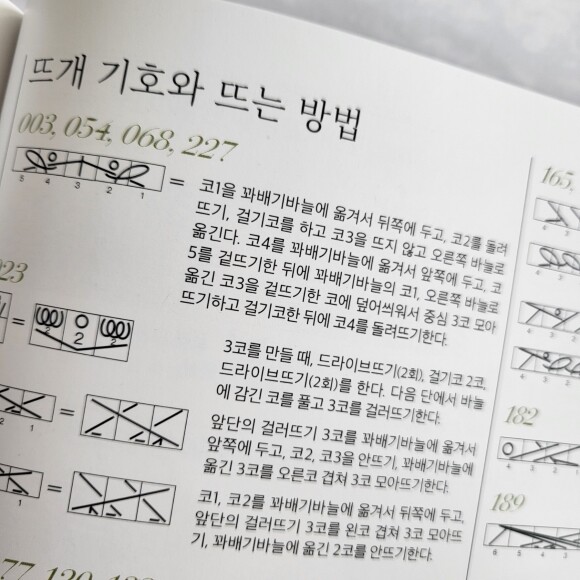 뜨개 기호와 뜨는 방법
003, 054, 068, 227
5 4 3 2 1
=
코1을 꽈배기바늘에 옮겨서 뒤쪽에 두고, 코2를 돌려
뜨기, 걸기코를 하고 코3을 뜨지 않고 오른쪽 바늘로
옮긴다. 코4를 꽈배기바늘에 옮겨서 앞쪽에 두고, 코
5를 겉뜨기한 뒤에 꽈배기바늘의 코1, 오른쪽 바늘로
옮긴 코3을 겉뜨기한 코에 덮어씌워서 중심 3코 모아
뜨기하고 걸기코한 뒤에 코4를 돌려뜨기한다.
023
=
2 2 2
3코를 만들 때, 드라이브뜨기(2회), 걸기코 2코,
드라이브뜨기(2회)를 한다. 다음 단에서 바늘
에 감긴 코를 풀고 3코를 걸러뜨기한다.
=
앞단의 걸러뜨기 3코를 꽈배기바늘에 옮겨서
앞쪽에 두고, 코2, 코3을 안뜨기, 꽈배기바늘에
옮긴 3코를 오른코 겹쳐 3코 모아뜨기한다.
=
코1, 코2를 꽈배기바늘에 옮겨서 뒤쪽에 두고,
앞단의 걸러뜨기 3코를 왼코 겹쳐 3코 모아뜨
기, 꽈배기바늘에 옮긴 2코를 안뜨기한다.
165,
4 3
4 3 2
4 3 2
4 3 2
182
4 3 2
189
6 5 4 3